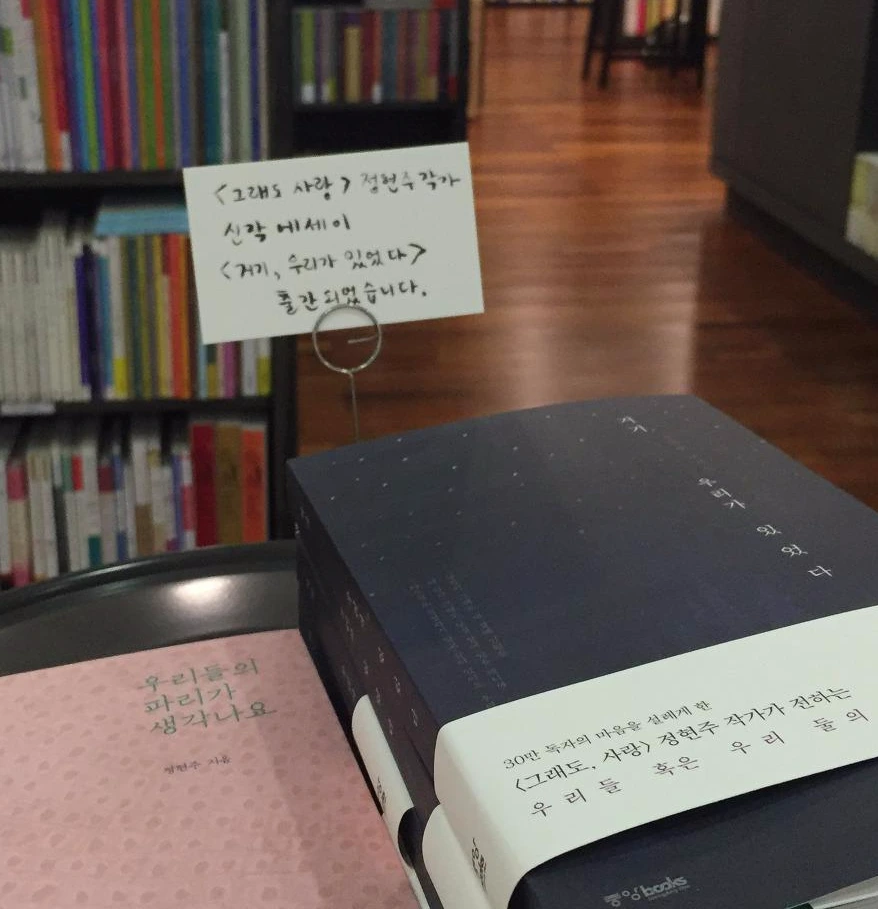 <그래도 사랑> 정현주 작가
신작 에세이
<거기, 우리가 있었다>
출간되었습니다.
거기
우리가
있었다
30만 독자의 마음을 설레게 한
<그래도, 사랑> 정현주 작가가 전하는
우리들 혹은 우리 둘의
중앙books
우리들의
파리가
생각나요
정현주 지음